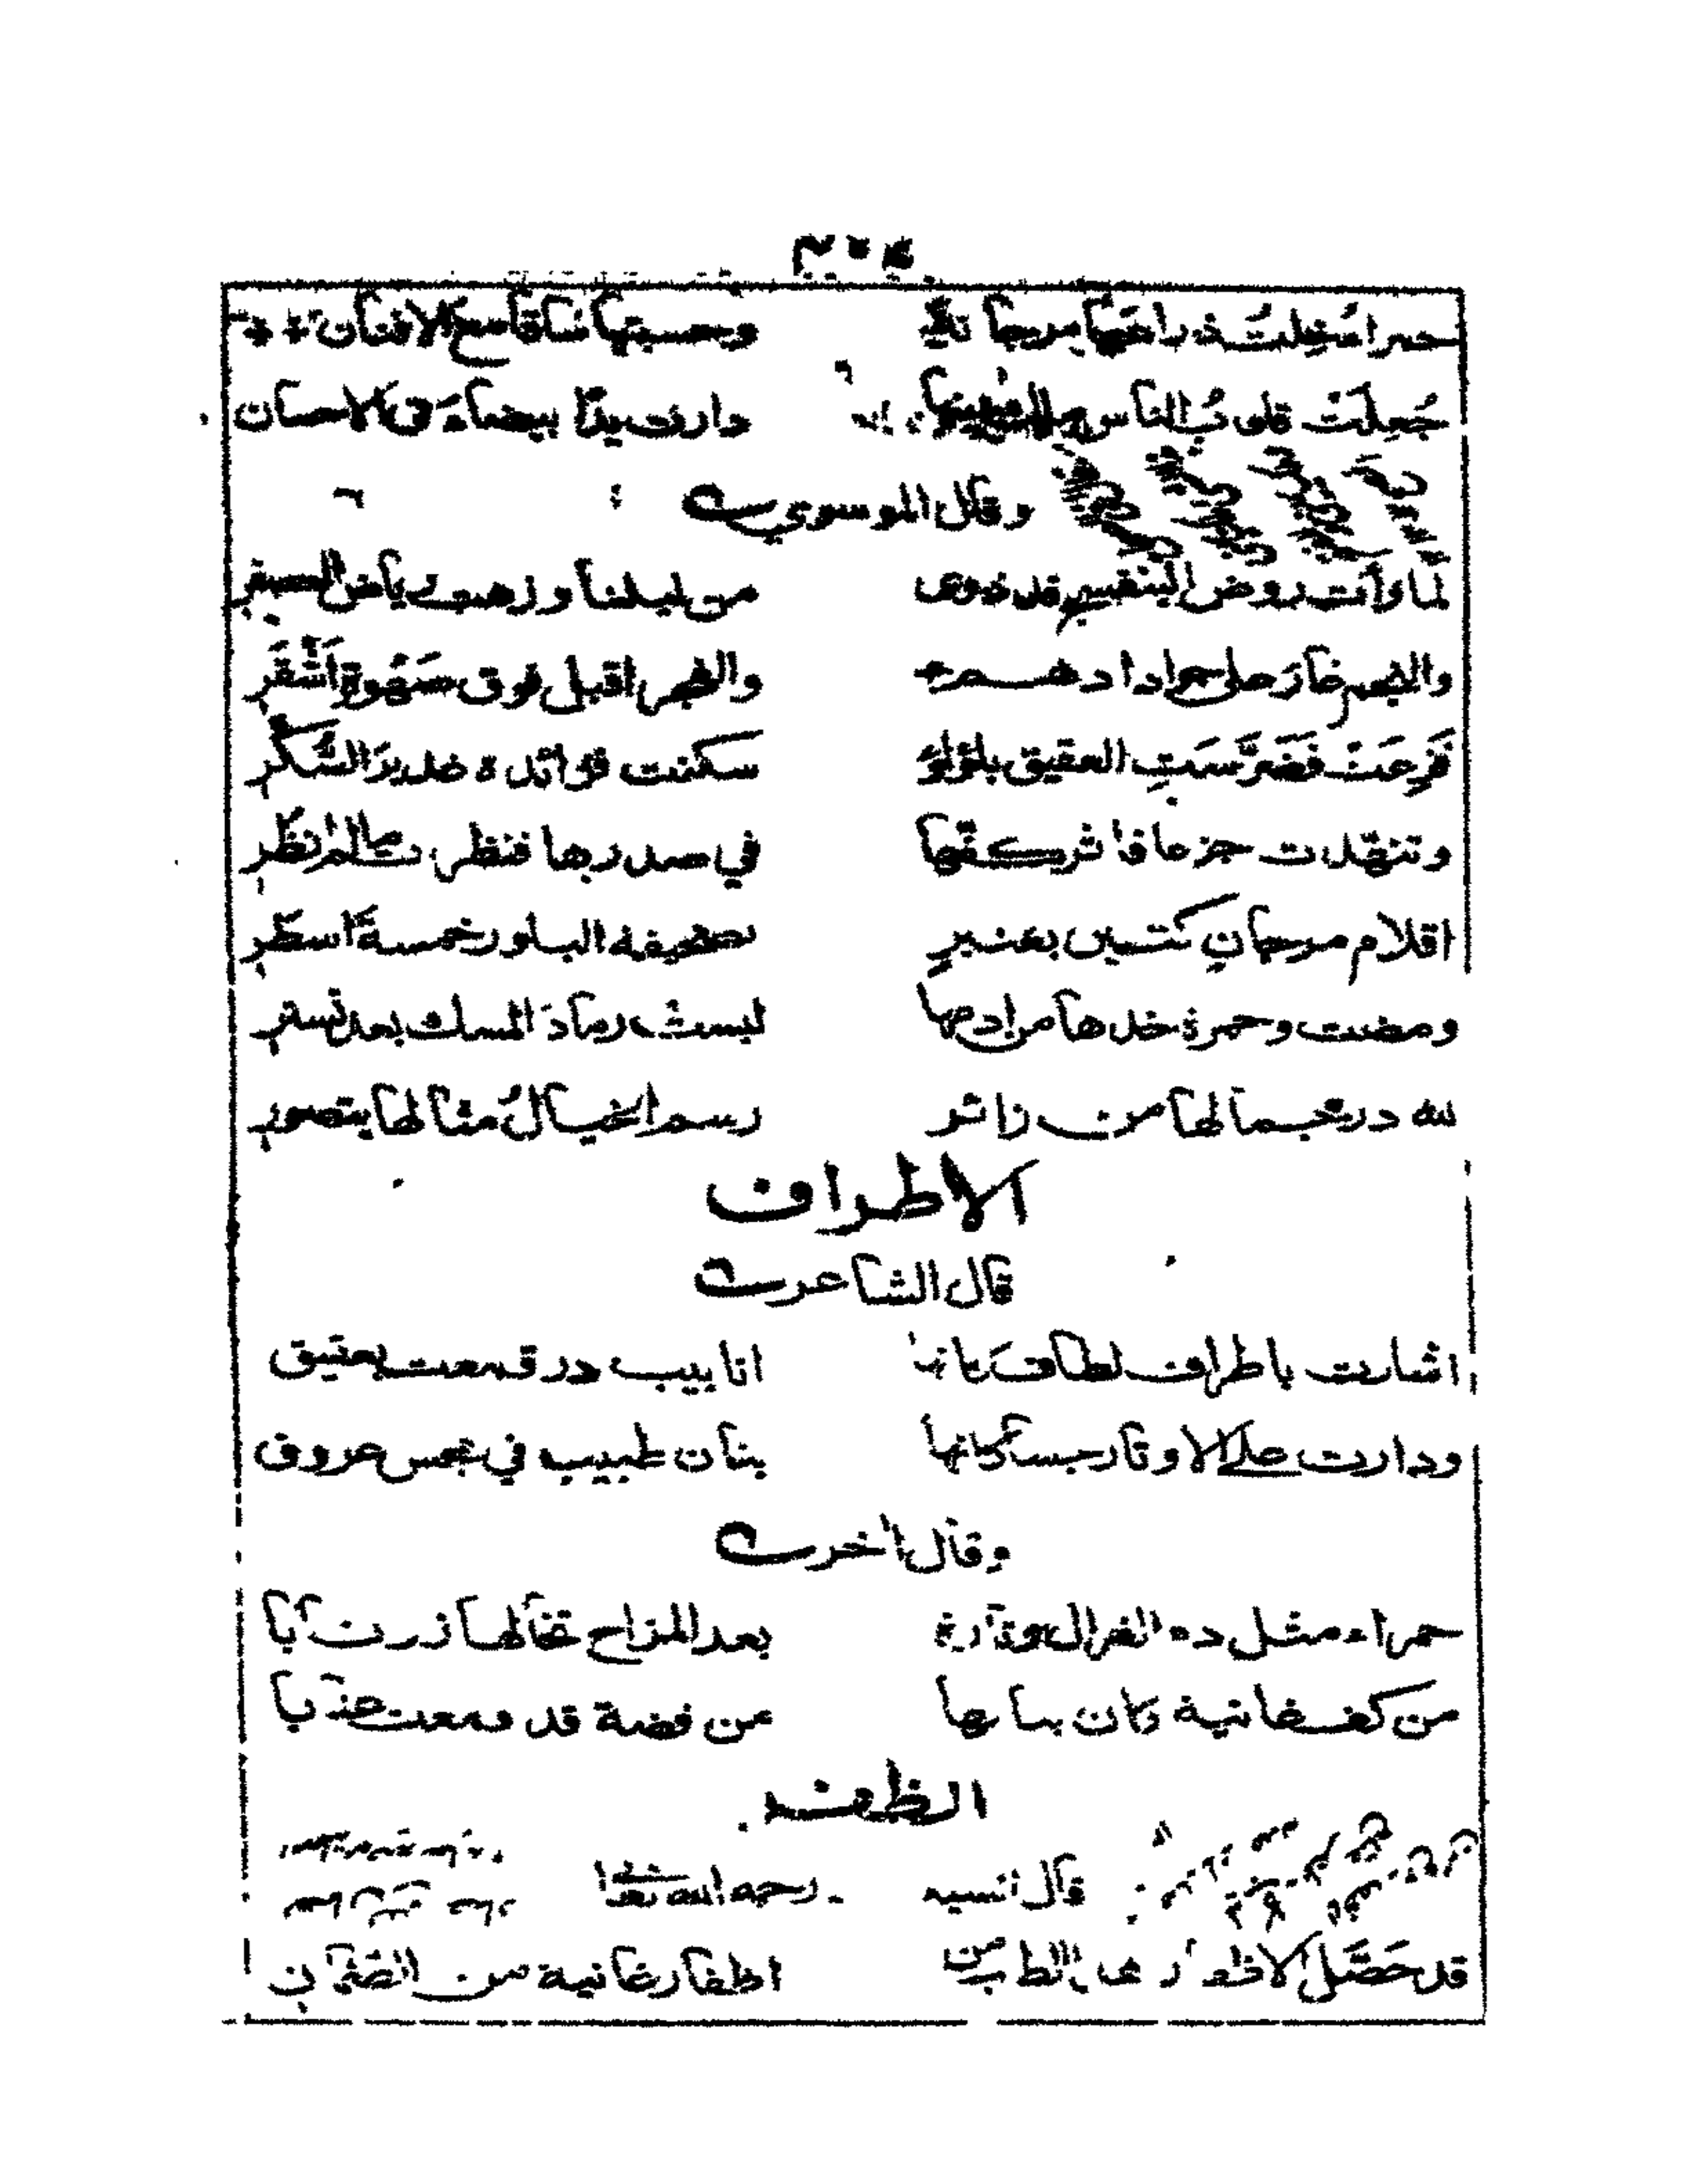 ٣٠٤
حمراء خلت ذراعها مرجانة وحسبتها ساقا مع الافنان
جُعِلَتْ قلوبُ الناس دارت يدًا بيضاءَ في الاحسان
وقال الموسوي
لما رأت روض البنفسج قد ذوى من ليلنا وزهت رياض العصفر
والنجم غار على جواد ادهم والفجر اقبل فوق صَهْوة اَشْقَر
فَزِعَتْ فَضَرَّسَتِ العقيق بلؤلؤ سكنت فرائده غديرَ السُّكَّر
وتنهّدت جزعا فاثر كفّها في صدرها فنظرت ما لم انظُر
اقلام مرجانٍ كتبن بعنبرٍ بصحيفة البلور خمسةَ اسطر
ومضت وحمرة خدها من ادمها لبست رمادَ المسك بعد تستر
لله در جمالها من زائر رسم الخيالُ مثالها بتصور
الاطراف
قال الشاعر
اشارت باطراف لطاف كانها انابيب در قمعت بعقيق
ودارت على الاوتار جسا كانها بنان طبيب في مجس عروق
وقال اخر
حمراء مثل دم الغزال وتارة بعد المزاج تخالها زريابا
من كف غانية كان بنانها من فضة قد قمعت عنابا
الظفر
قال رحمه الله تعالى
قد حَصَّل الاظفار اظفار غانية من